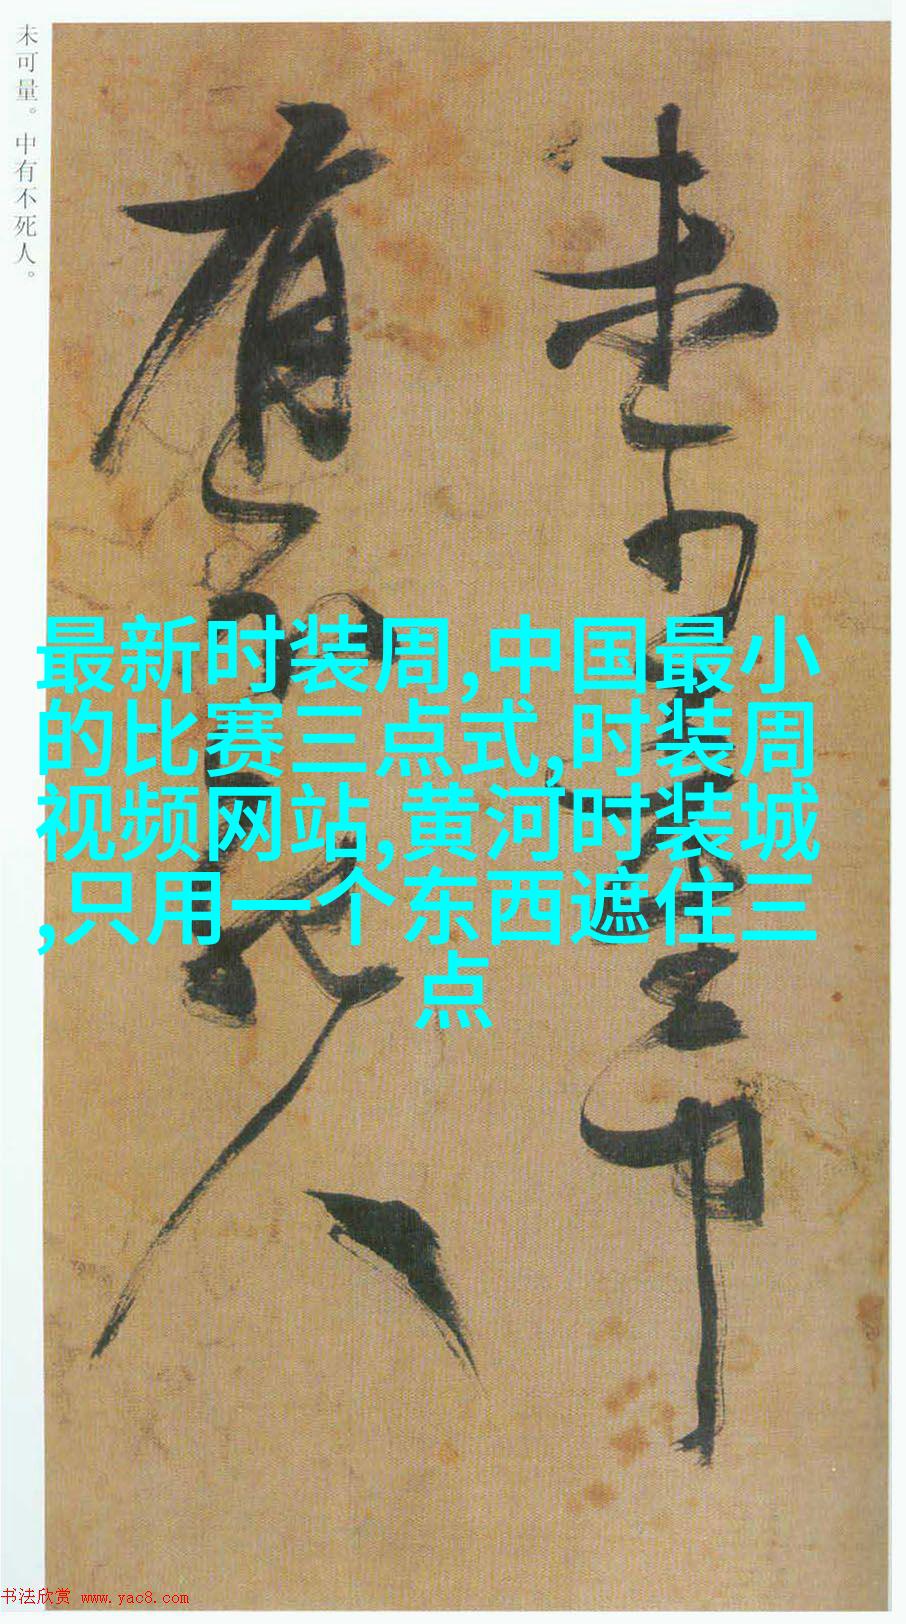 未可量。中有不死人。
未可量中
有不死人
最新时装周,中国最小
的比赛三点式,时装周
视频网站,黄河时装城
,只用一个东西遮住三
点
书法欣赏 www.yac8.com